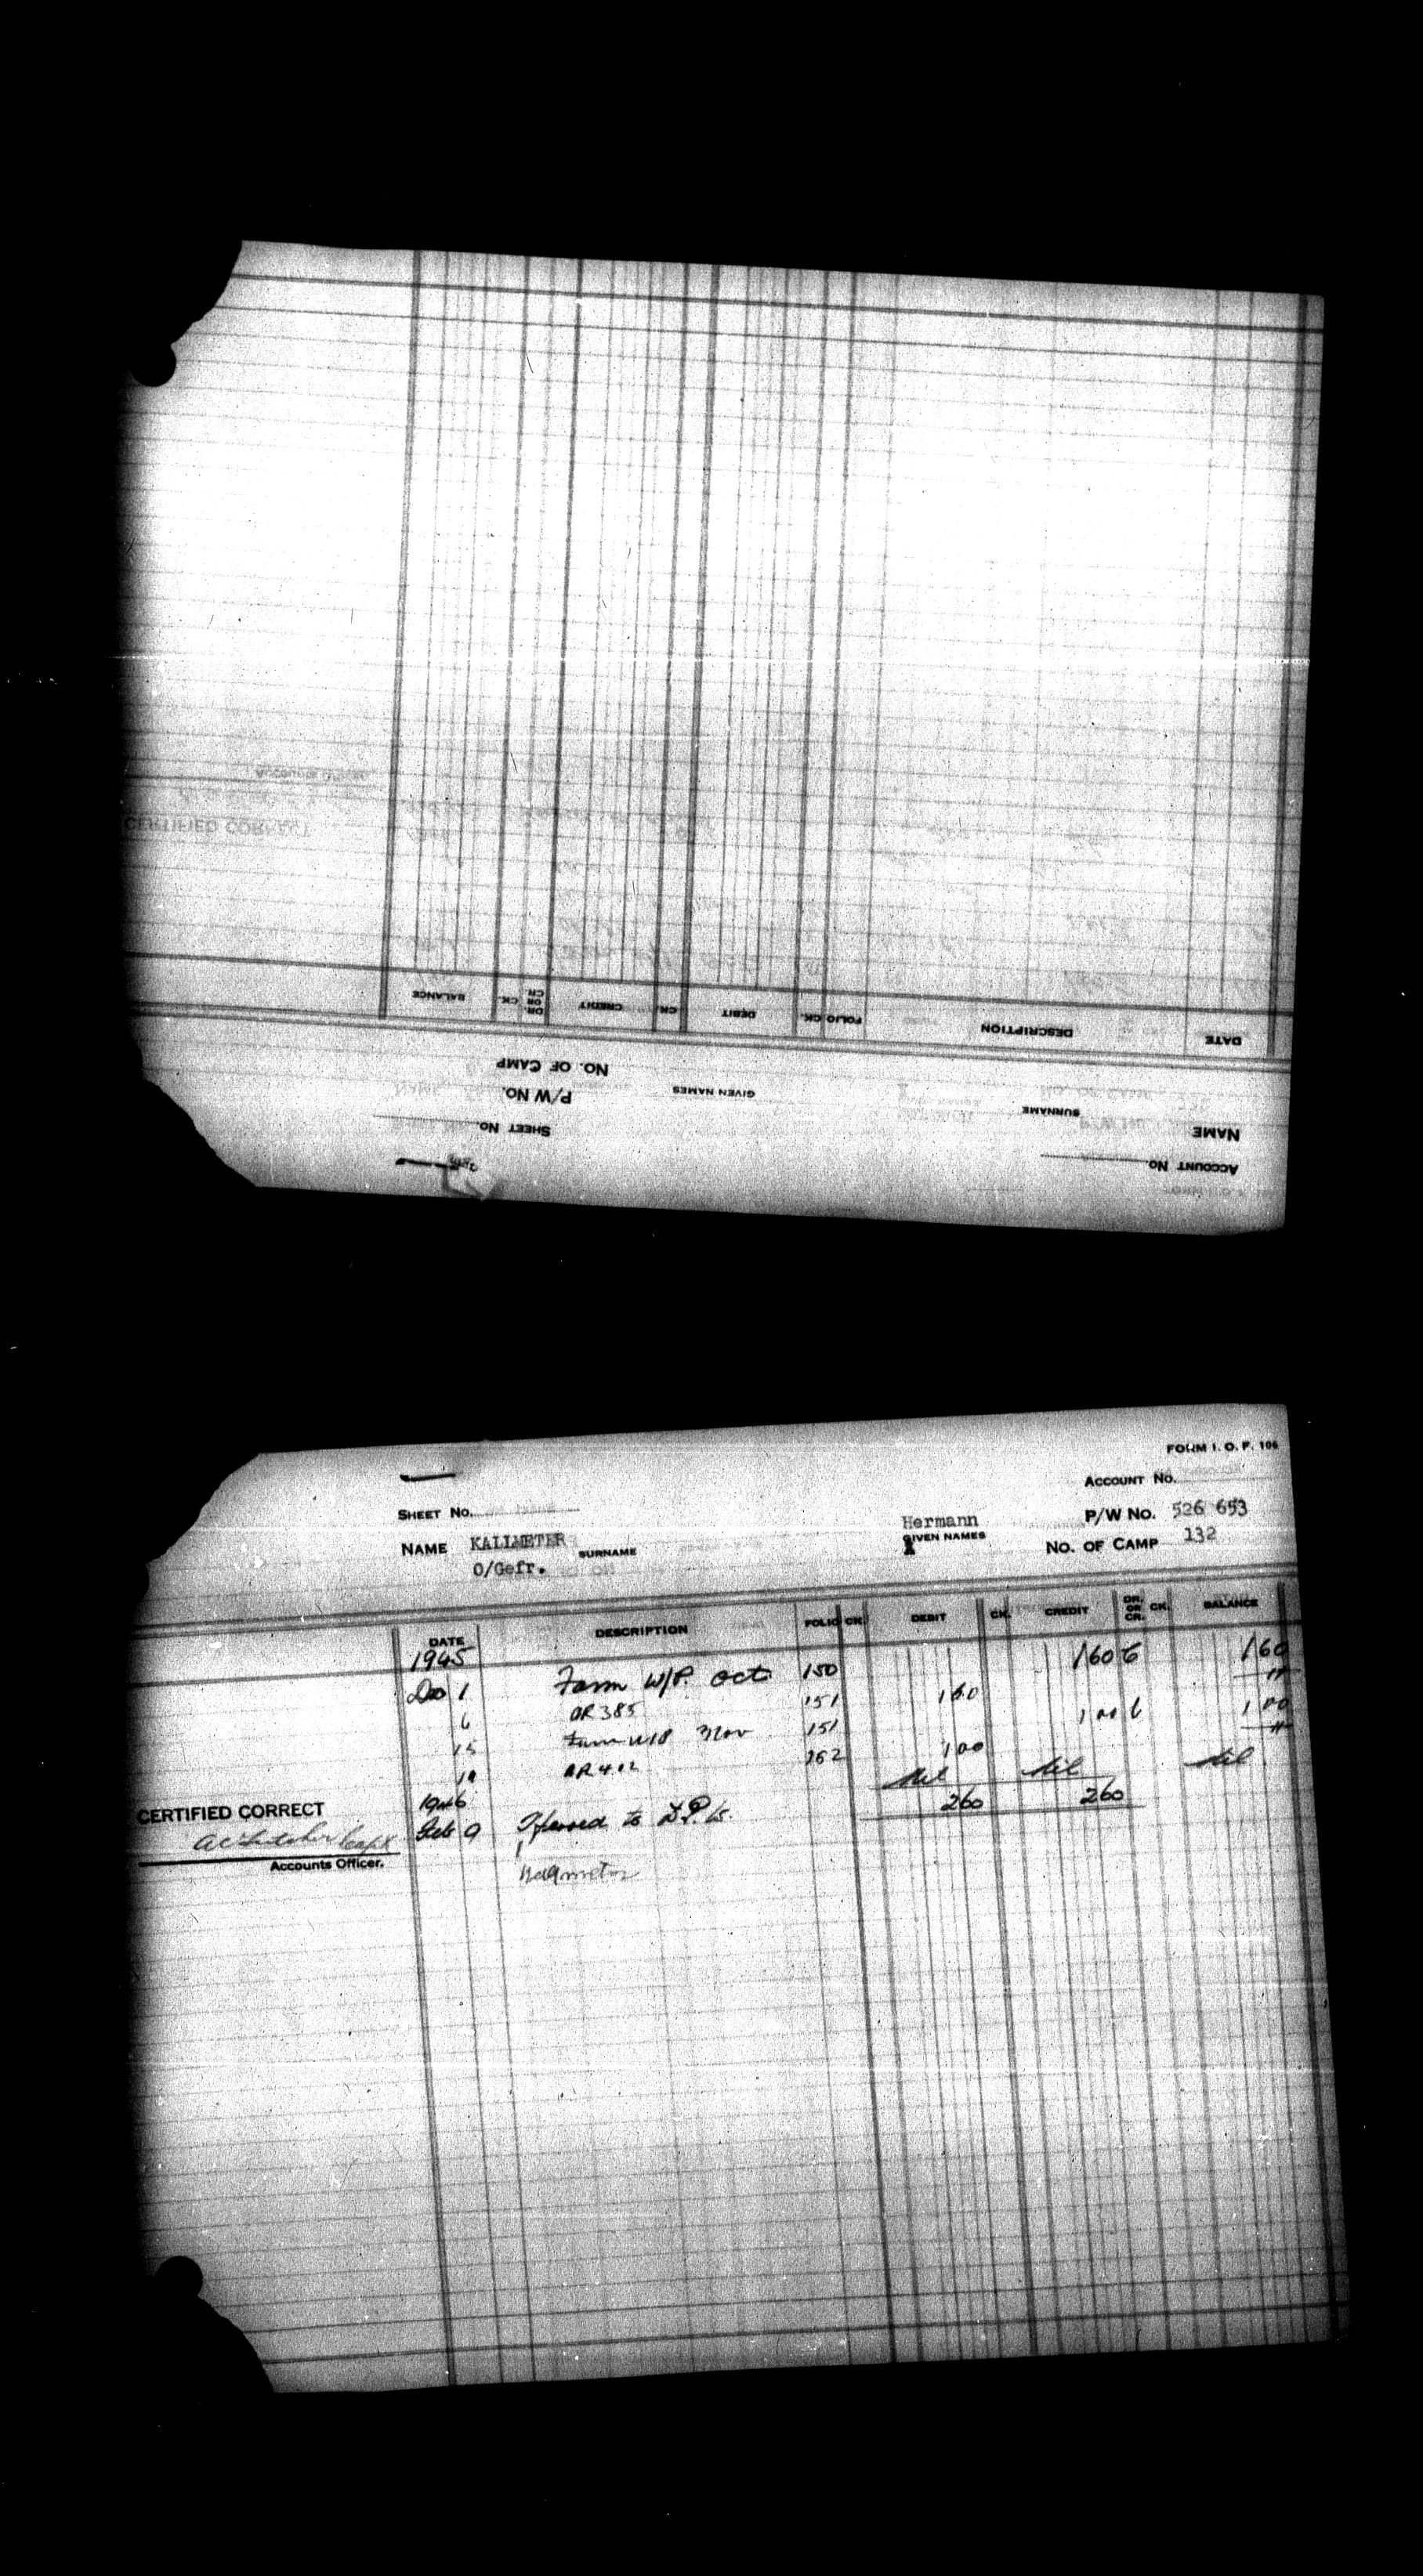 ACCOUNT No.
SHEET No.
NAME SURNAME GIVEN NAMES P/W No.
NO. OF CAMP
DATE DESCRIPTION FOLIO CK. DEBIT CK. CREDIT DR. OR CR. CK. BALANCE
FORM I. O. P. 106
ACCOUNT No.
SHEET No. P/W No. 526 653
NAME KALLMETER Hermann
SURNAME GIVEN NAMES NO. OF CAMP 132
O/Gefr.
DATE DESCRIPTION FOLIO CK. DEBIT CK. CREDIT DR. OR CR. CK. BALANCE
1945
Dec 1 Farm W/P. Oct 150 1 60 C 1 60
6 OR 385 151 1 60 "
15 Farm W/P Nov 151 1 00 C 1 00
19 OR 412 152 1 00 "
Nil Nil Nil
1946 2 60 2 60
Feb 9 Tferred to
CERTIFIED CORRECT
Capt
Accounts Officer.